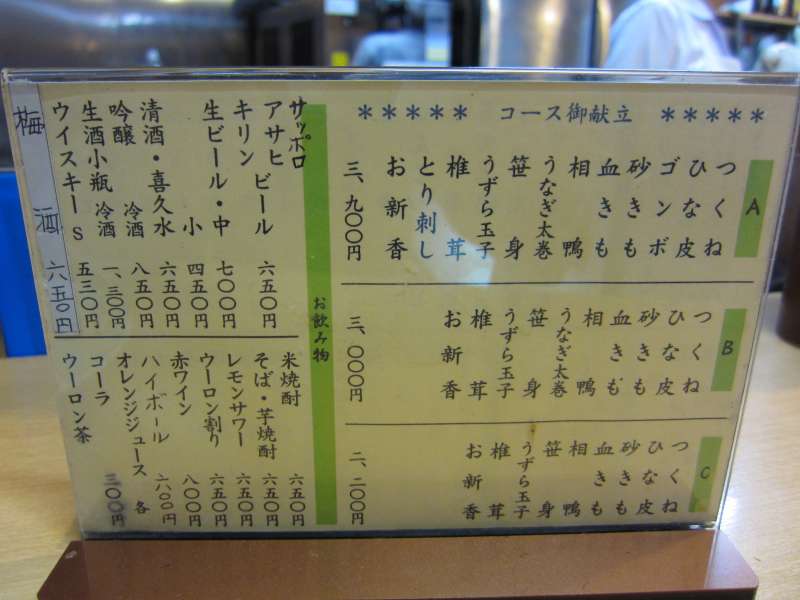 ＊＊＊＊＊ コース御献立 ＊＊＊＊＊
A
つくね
ひな皮
ゴンボ
砂きも
血きも
相鴨
うなぎ太巻
笹身
うずら玉子
椎茸
とり刺し
お新香
三、九〇〇円
B
つくね
ひな皮
砂きも
血きも
相鴨
うなぎ太巻
笹身
うずら玉子
椎茸
お新香
三、〇〇〇円
C
つくね
ひな皮
砂きも
血きも
相鴨
笹身
うずら玉子
椎茸
お新香
二、二〇〇円
お飲み物
サッポロ
アサヒビール 六五〇円
キリン
生ビール・中 七〇〇円
小 四五〇円
清酒・喜久水 六五〇円
吟醸 冷酒 八五〇円
生酒小瓶 冷酒 一、三〇〇円
ウイスキーS 五三〇円
梅酒 六五〇円
米焼酎 六五〇円
そば・芋焼酎 六五〇円
レモンサワー 六五〇円
ウーロン割り 六五〇円
赤ワイン 八〇〇円
ハイボール 六〇〇円
オレンジジュース 各
コーラ 三〇〇円
ウーロン茶